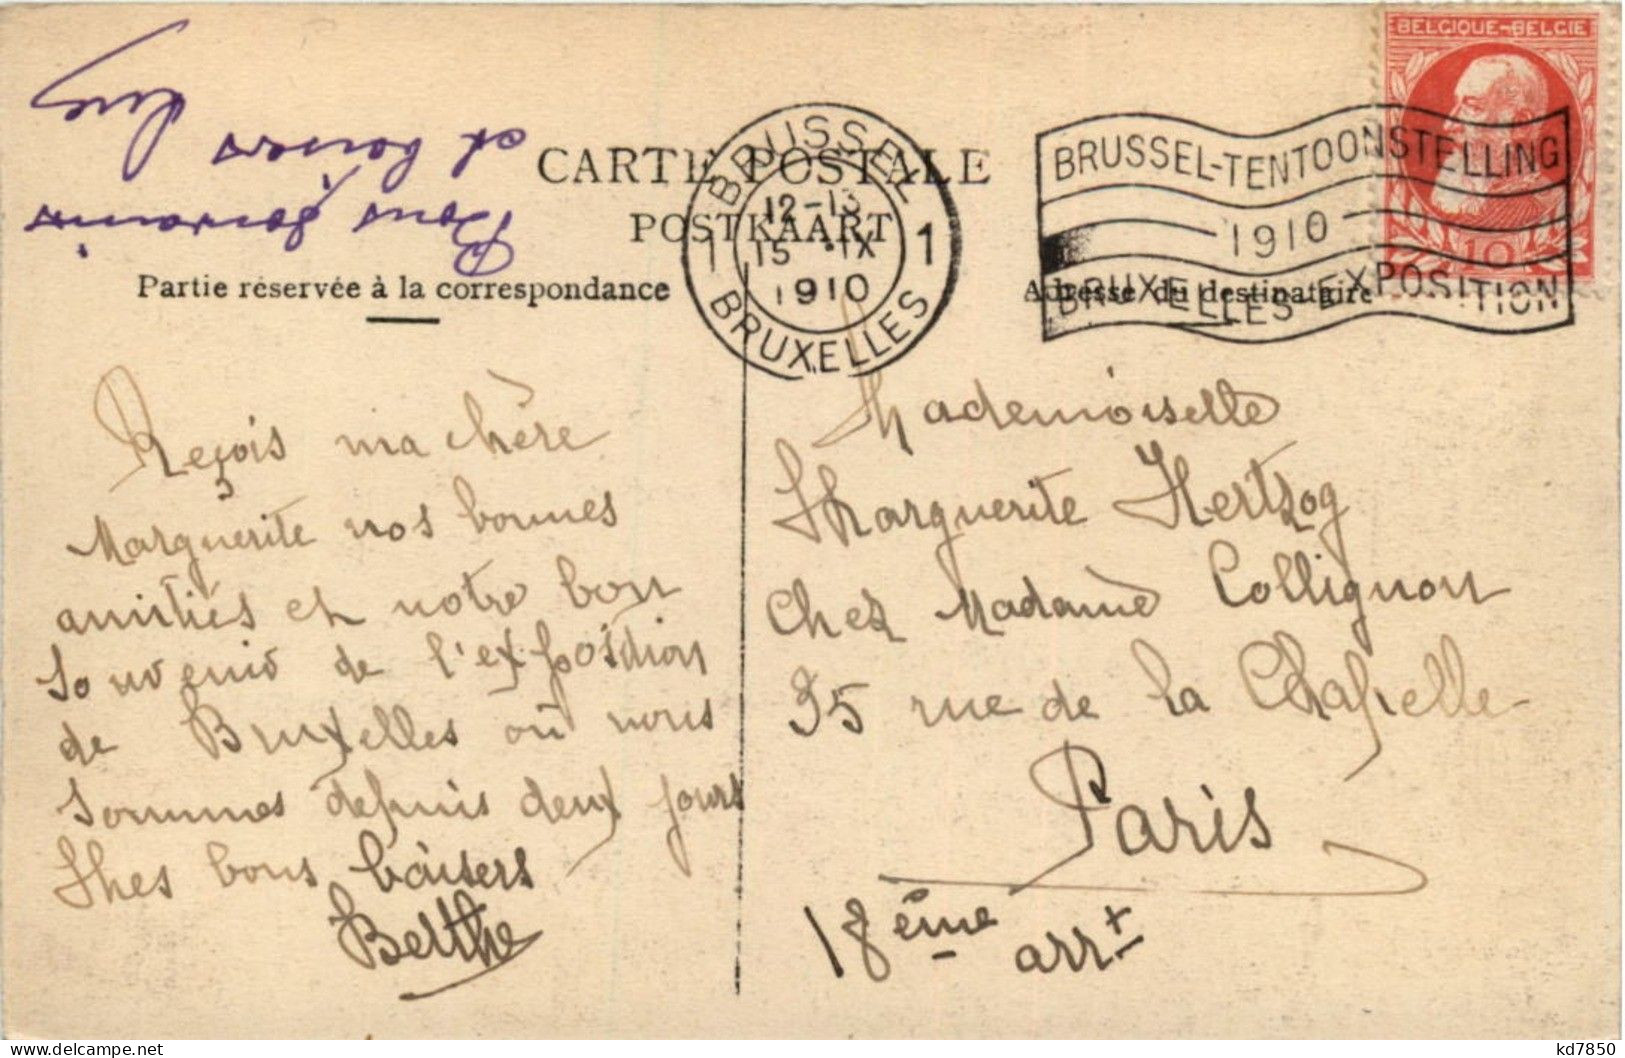 BELGIQUE-BELGIE
10
CARTE POSTALE
POSTKAART
Partie réservée à la correspondance
Adresse du destinataire
BRUSSEL
12-13
1 15 ·IX 1
1910
BRUXELLES
BRUSSEL-TENTOONSTELLING
1910
BRUXELLES-EXPOSITION
Bons
et baisers
Reçois ma chère
Marguerite nos bonnes
amitiés et notre bon
Souvenir de l'exposition
de Bruxelles où nous
Sommes depuis deux jours
Mes bons baisers
Berthe
Mademoiselle
Marguerite Hertzog
Chez Madame Collignon
35 rue de la Chapelle
Paris
18ème arrt
kd7850